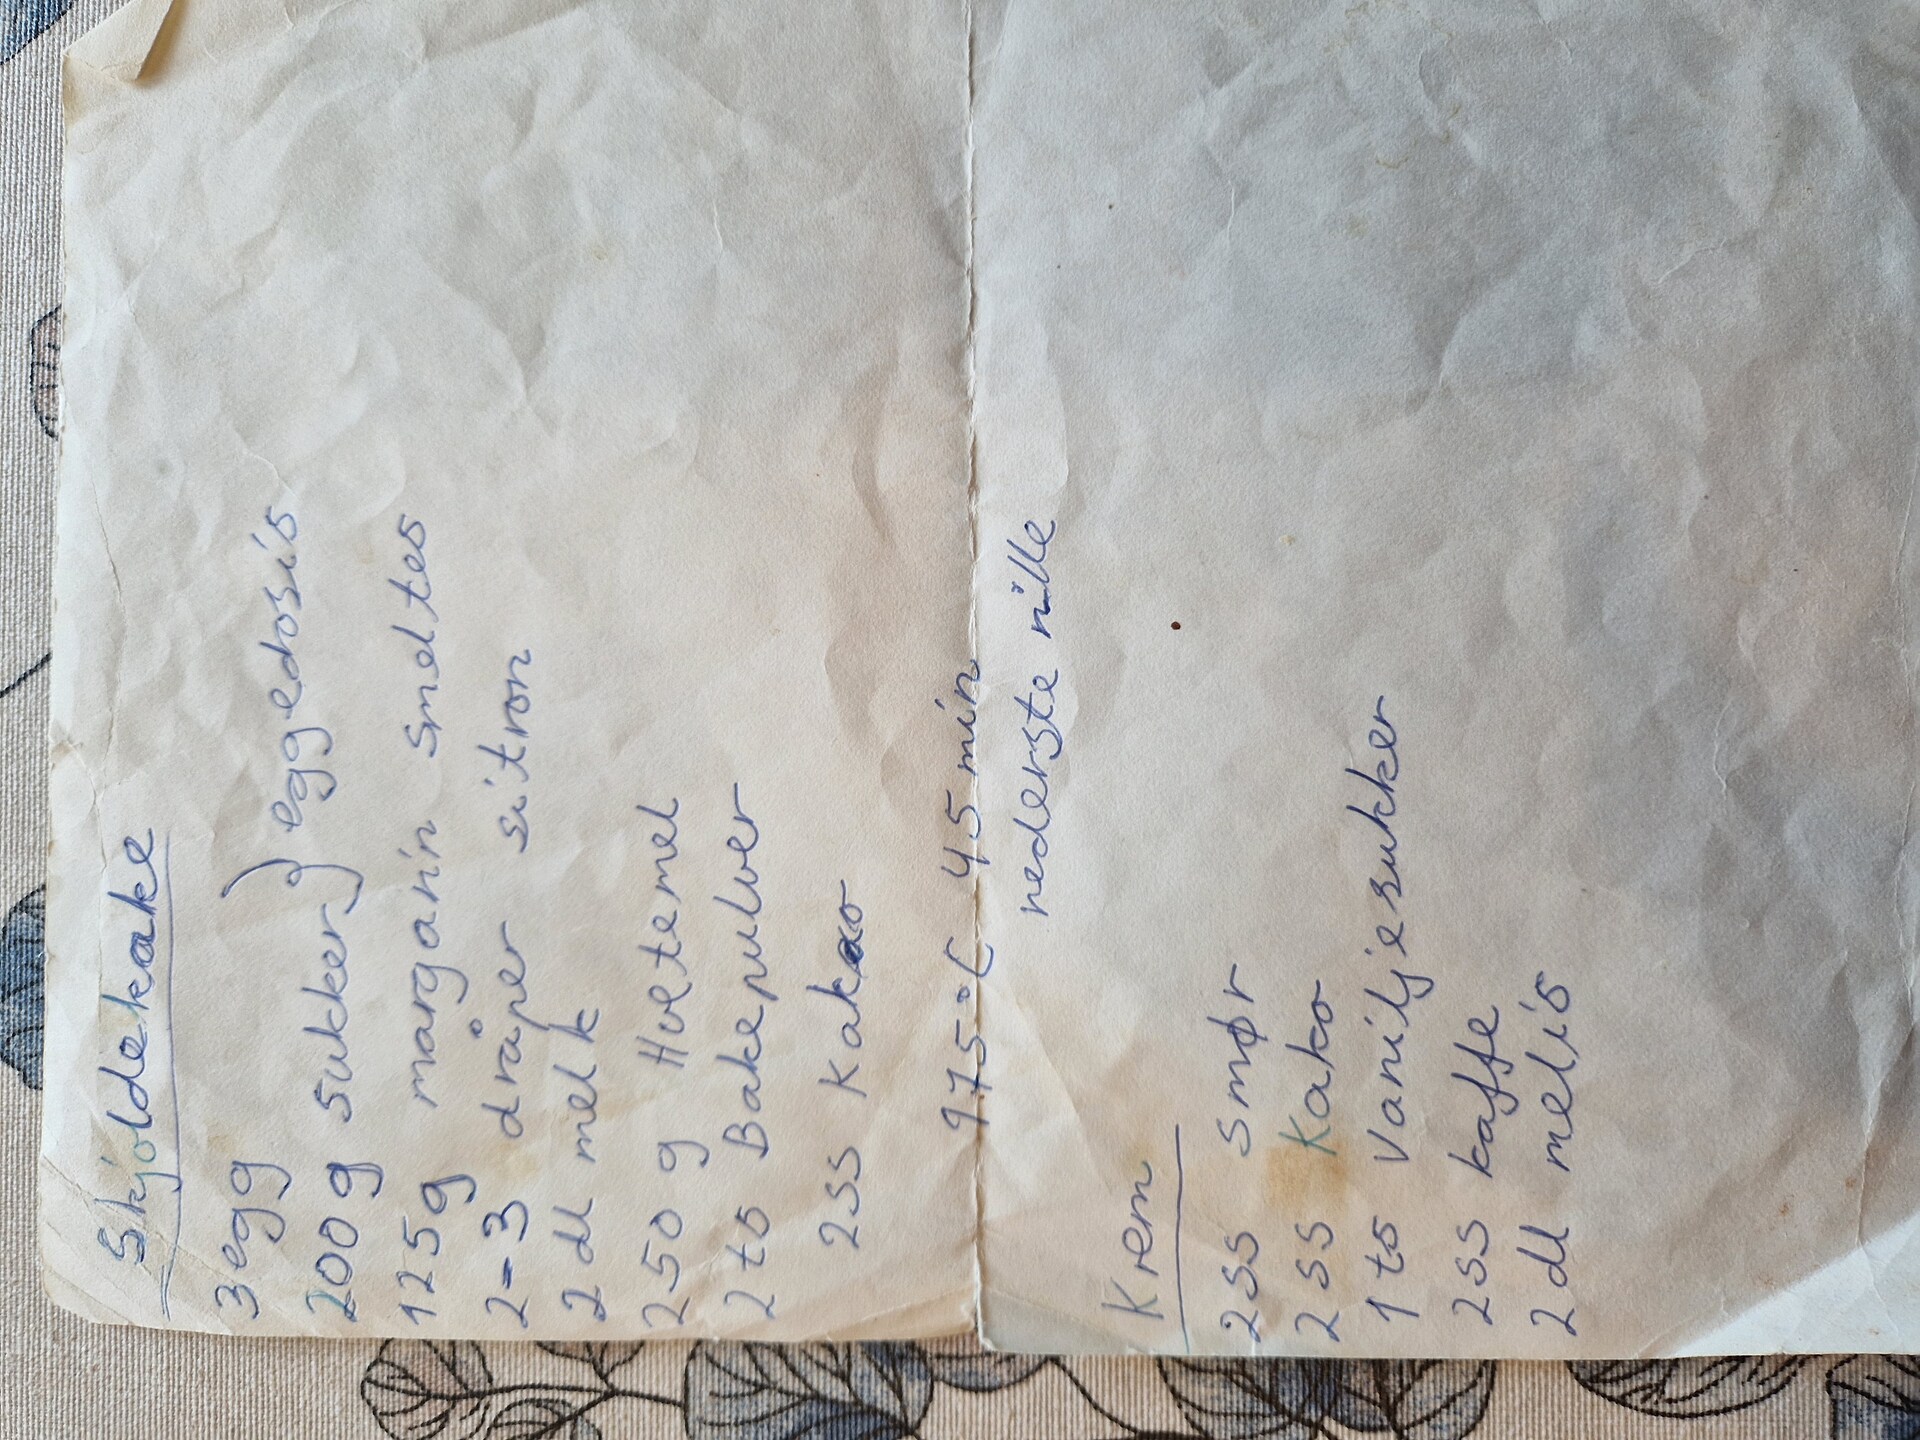 Skjoldekake
3 egg
200 g sukker } eggedosis
125g margarin smeltes
2-3 dråper sitron
2 dl melk
250 g Hvetemel
2 ts Bakepulver
2ss Kakao
175°C 45 min
nederste rille
Krem
2ss smør
2ss Kako
1 ts Vaniljesukker
2ss kaffe
2dl melis